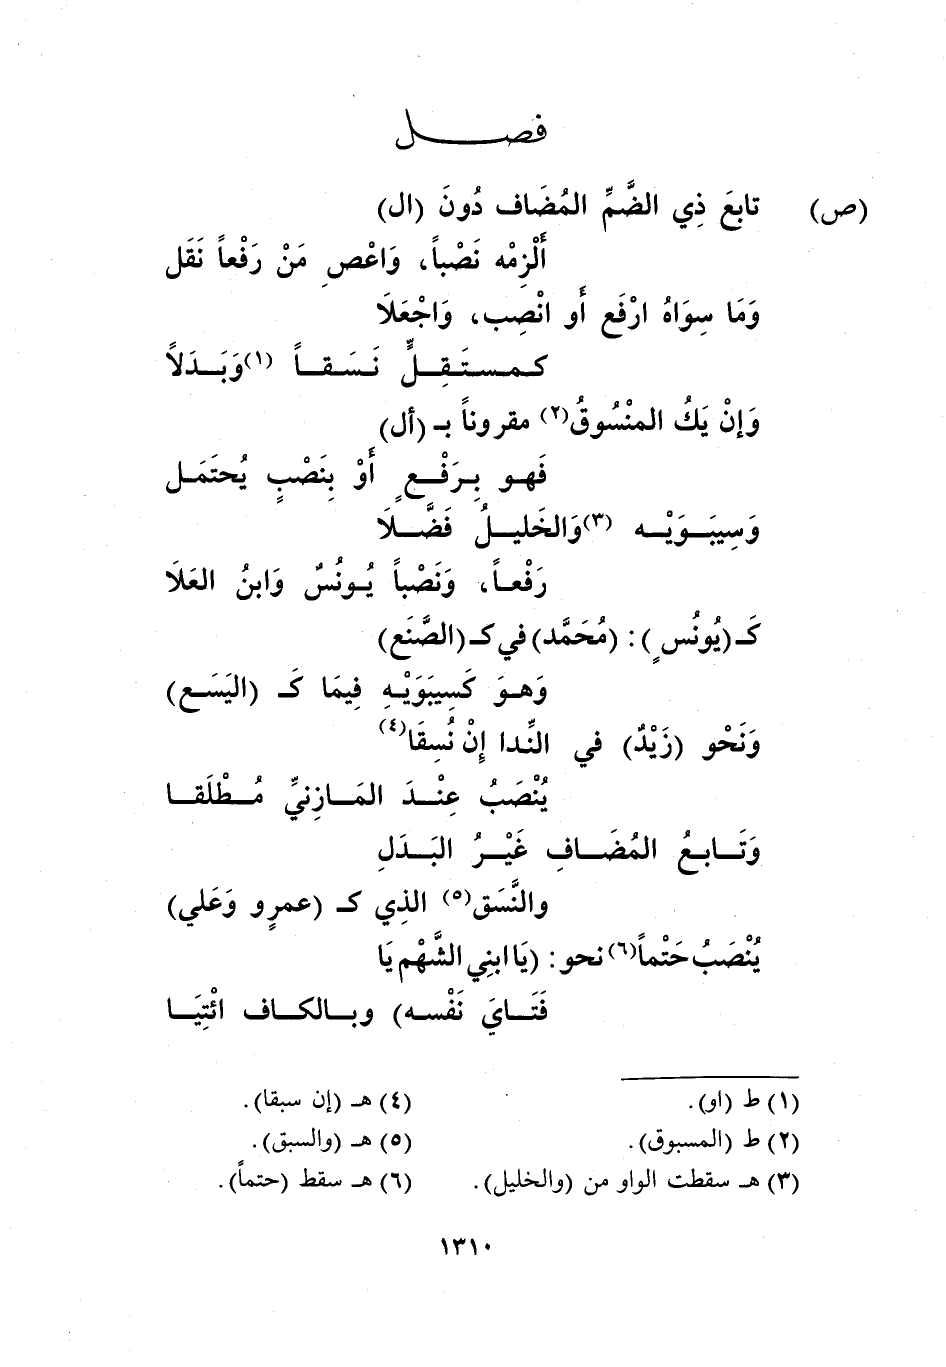 فصـــــل
(ص) تابعَ ذِي الضَّمِّ المُضَاف دُونَ (ال)
أَلْزِمْه نَصْباً، وَاعْصِ مَنْ رَفْعاً نَقَل
وَمَا سِوَاهُ ارْفَع أَو انْصِب، وَاجْعَلَا
كـمـستَـقِـلٍّ نَـسَـقـاً (١)وَبَـدَلاً
وَإنْ يَكُ المنْسُوقُ(٢) مقروناً بـ (أل)
فَهـو بِـرَفْـعٍ أَوْ بِنَصْبٍ يُحتَمَـل
وَسِيبَـوَيْـه (٣)وَالخَليـلُ فَضَّـلَا
رَفْعـاً، وَنَصْباً يُـونُسٌ وَابنُ العَلَا
كَـ (يُونُسٍ): (مُحَمَّد) في كـ (الصَّنَع)
وَهـوَ كَسِيبَوَيْـهِ فِيمَا كَـ (اليَسَـع)
وَنَحْو (زَيْدٌ) في النِّدا إنْ نُسِقَا(٤)
يُنْصَبُ عِنْـدَ المَـازِنيِّ مُـطْلَقـا
وَتَـابـعُ المُضَـافِ غَيْـرُ البَـدَلِ
والنَّسَق(٥) الذِي كـ (عمرٍو وَعَلي)
يُنْصَبُ حَتْماً(٦) نحو: (يَا ابنِي الشَّهْمِ يَا
فَتَـايَ نَفْسـه) وبـالكـاف ائْتِيَـا
(١) ط (او).
(٢) ط (المسبوق).
(٣) هـ سقطت الواو من (والخليل).
(٤) هـ (إن سبقا).
(٥) هـ (والسبق).
(٦) هـ سقط (حتماً).
١٣١٠